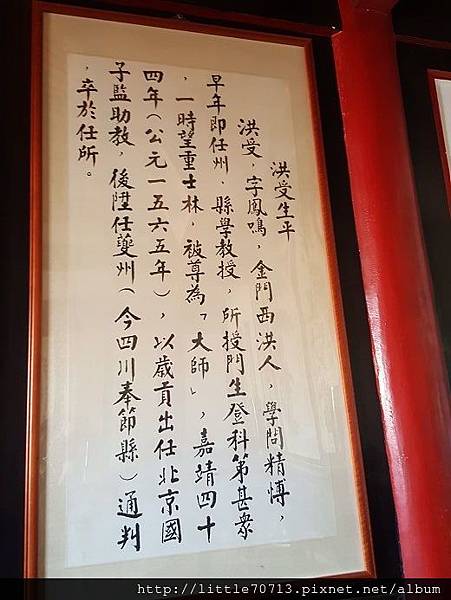 洪受生平
洪受，字鳳鳴，金門西洪人，學問精愽，
早年即任州．縣學教授，所授門生登科第甚衆
，一時望重士林，被尊為「大師」，嘉靖四十
四年（公元一五六五年），以歲貢出任北京國
子監助教，後陞任夔州（今四川奉節縣）通判
，卒於任所。
http://little70713.pixnet.net/album